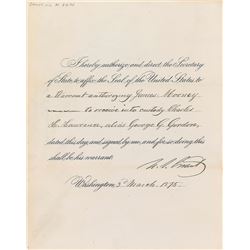 I hereby authorize and direct the Secretary
of State to affix the Seal of the United States to
a Warrant authorizing James Mooney
to receive into custody Charles
H. Lawrence, alias George G. Gordon,
dated this day, and signed by me, and for so doing this
shall be his warrant.
U. S. Grant
Washington, 5th March, 1875.